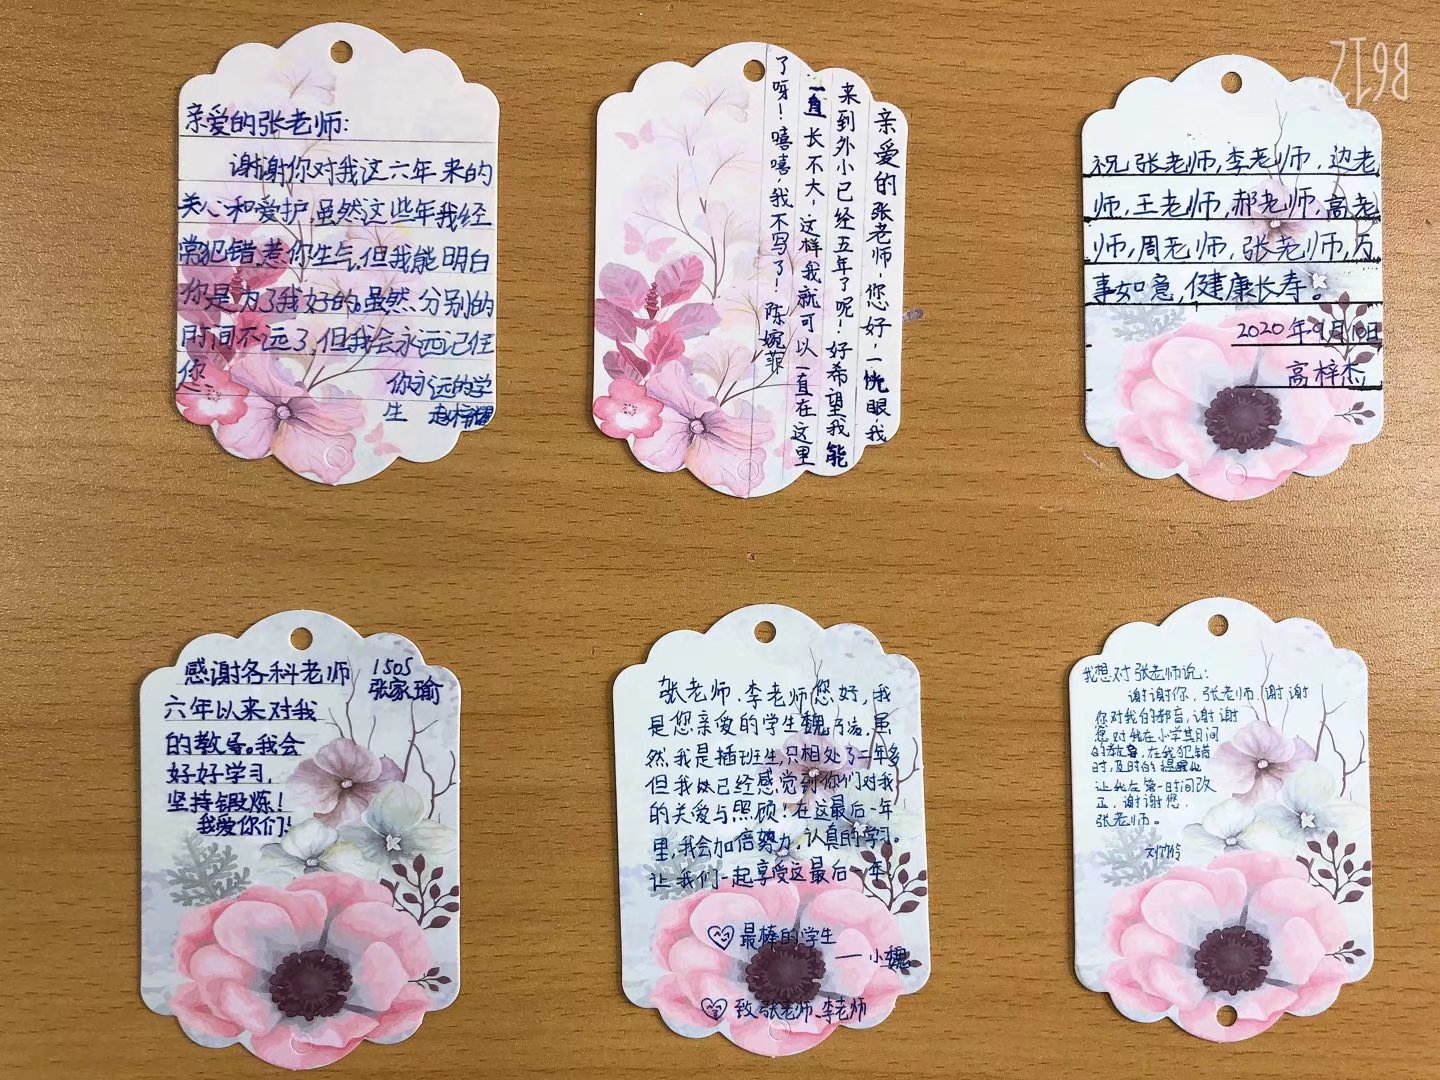 亲爱的张老师:
谢谢你对我这六年来的
关心和爱护,虽然这些年我经
常犯错,惹你生气,但我能明白
你是为了我好的。虽然分别的
时间不远了,但我会永远记住
你
你永远的学
生
亲爱的张老师,您好,一恍眼,我
来到外小已经五年了呢!好希望我能
一直长不大,这样我就可以一直在这里
了呀!嘻嘻,我不写了!陈婉菲
祝张老师,李老师,边老
师,王老师,郝老师,高老
师,周老师,张老师,万
事如意,健康长寿。
2020年9月10日
高梓杰
感谢各科老师
1505
张家瑜
六年以来对我
的教导。我会
好好学习,
坚持锻炼!
我爱你们!
张老师、李老师您好,我
是您亲爱的学生魏,虽
然,我是插班生,只相处了二年多
但我已经感觉到你们对我
的关爱与照顾!在这最后一年
里,我会加倍努力,认真的学习。
让我们一起享受这最后一年!
最棒的学生
——小魏
致张老师、李老师
我想对张老师说:
谢谢你,张老师,谢谢
您对我的教育,谢谢
您对我在小学其间
的教育,在我犯错
时,及时的提醒
让我在第一时间改
正,谢谢您,
张老师。
B612